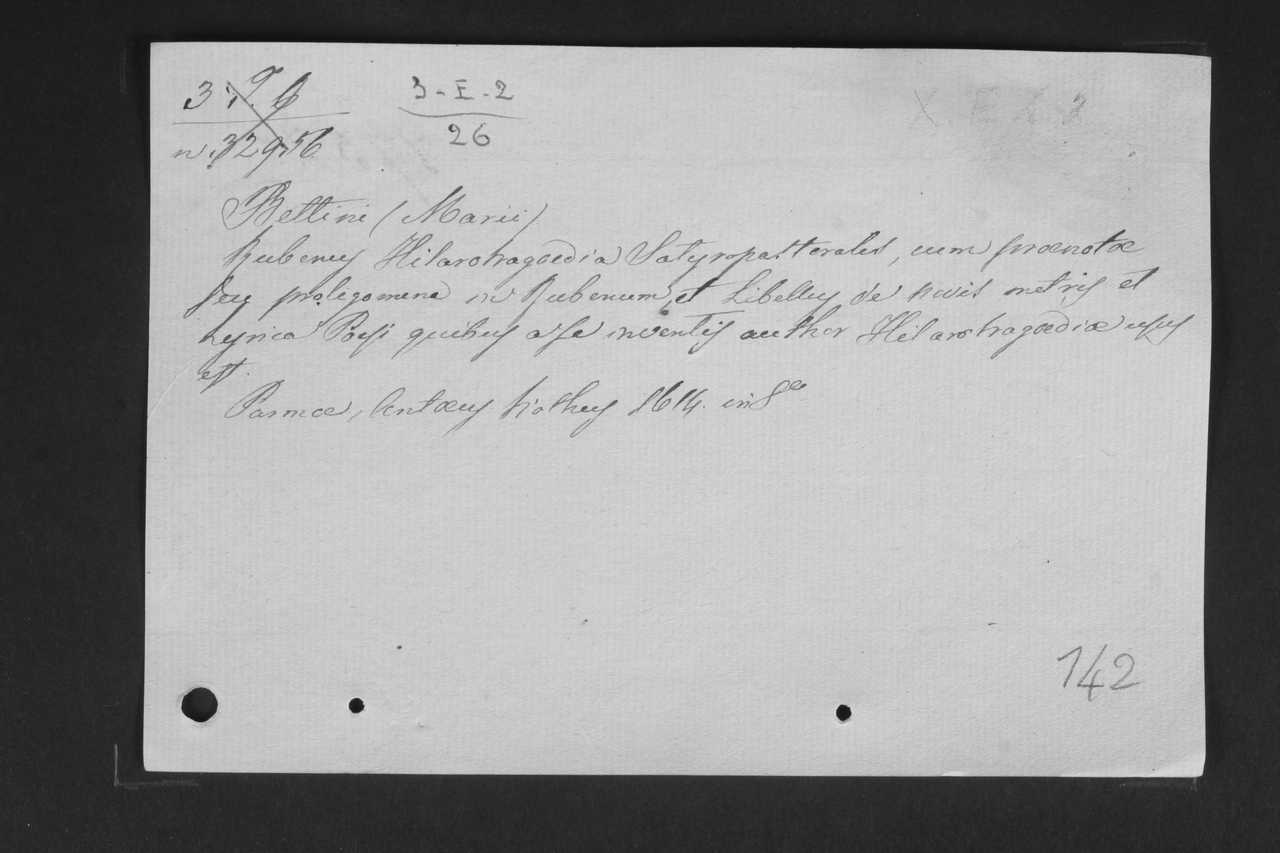 3-I-2
26
n. 32956
Bettini (Marii)
Rubenus Hilarotragoedia Satyropastoralis, cum prænotæ
seu prolegomena in Rubenum, et Libellus de novis metris et
Lyrica Poesi quibus a se inventis author Hilarotragoediæ usus
est.
Parmæ, Antæus Viothus 1614. in
142